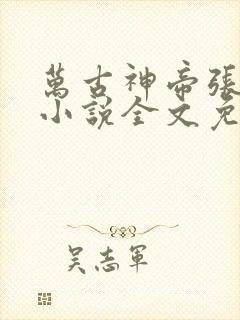 萬古神帝張
小說全文免
吳志軍